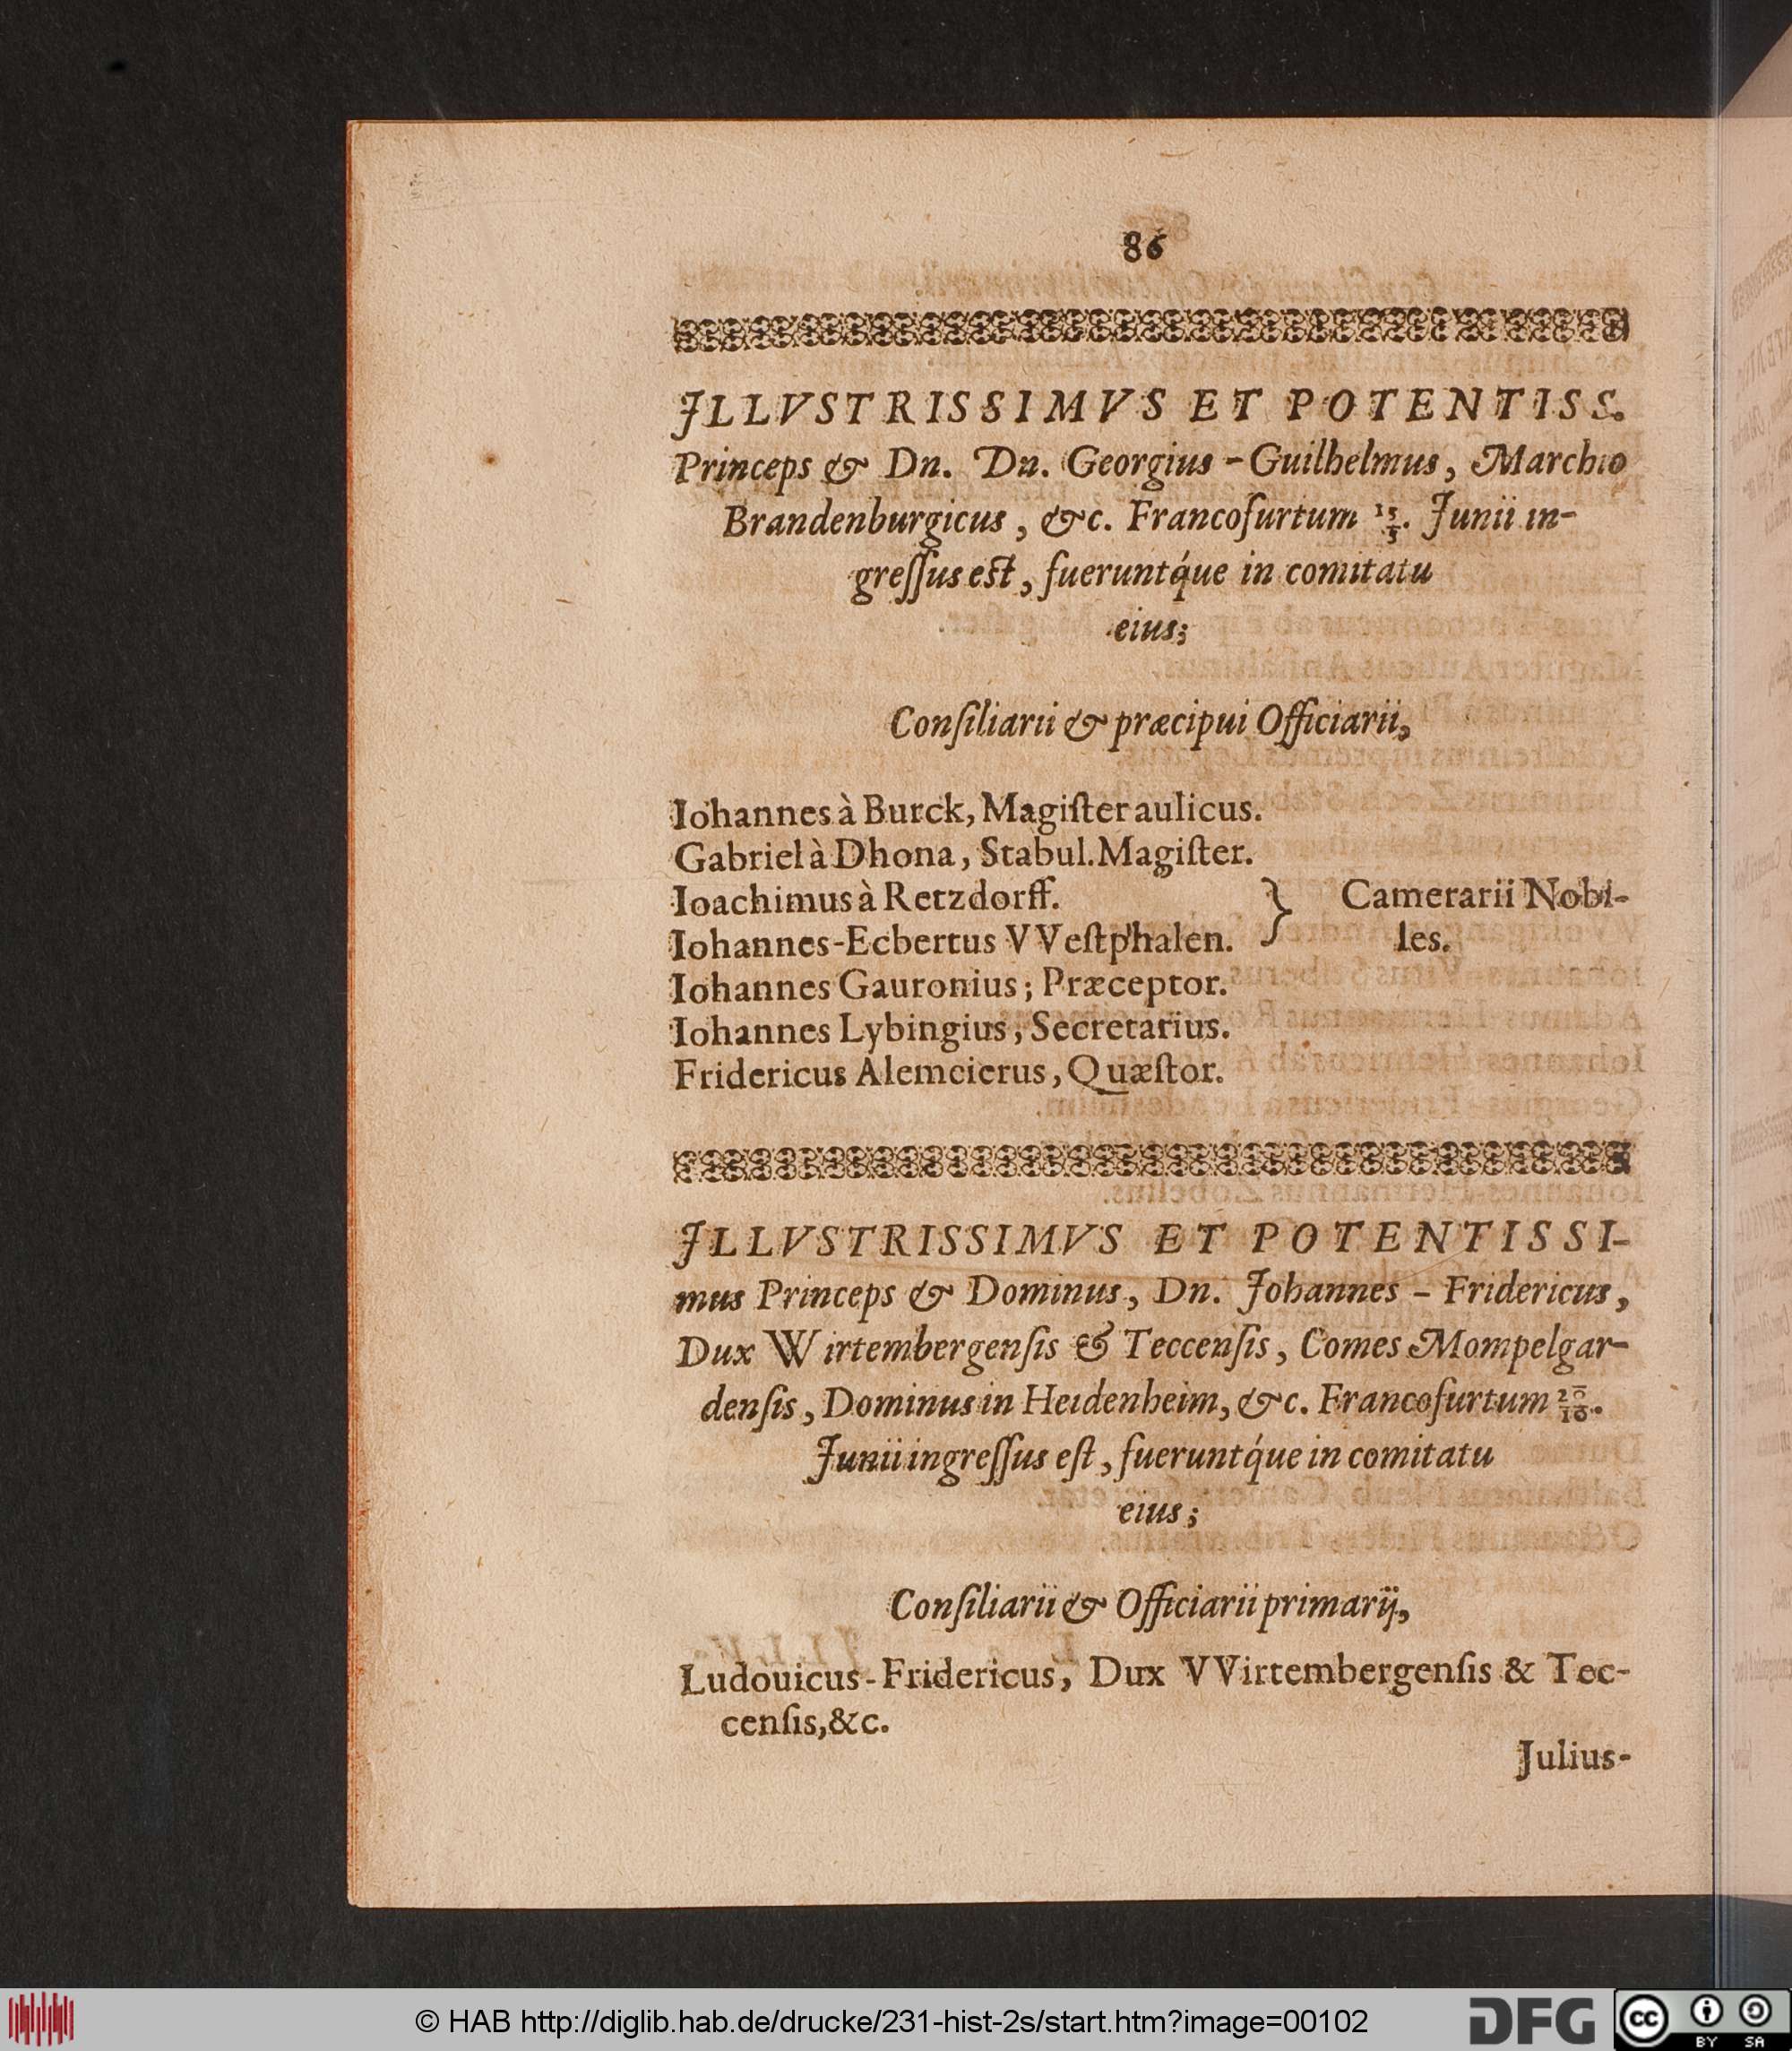 86
JLLVSTRISSIMVS ET POTENTISS.
Princeps & Dn. Dn. Georgius - Guilhelmus, Marchio
Brandenburgicus, &c. Francofurtum 15/5. Junii in-
greſſus est, fueruntq́ue in comitatu
eius;
Conſiliarii & præcipui Officiarii,
Iohannes à Burck, Magiſter aulicus.
Gabriel à Dhona, Stabul. Magiſter.
Ioachimus à Retzdorff. } Camerarii Nobi-
Iohannes-Ecbertus VVeſtphalen. les.
Iohannes Gauronius; Præceptor.
Iohannes Lybingius, Secretarius.
Fridericus Alemeierus, Quæſtor.
JLLVSTRISSIMVS ET POTENTISSI-
mus Princeps & Dominus, Dn. Johannes - Fridericus,
Dux Wirtembergenſis & Teccenſis, Comes Mompelgar-
denſis, Dominus in Heidenheim, &c. Francofurtum 20/10.
Junii ingreſſus eſt, fueruntq́ue in comitatu
eius;
Conſiliarii & Officiarii primarij,
Ludouicus-Fridericus, Dux VVirtembergenſis & Tec-
cenſis, &c.
Julius-
© HAB http://diglib.hab.de/drucke/231-hist-2s/start.htm?image=00102
DFG
cc BY SA